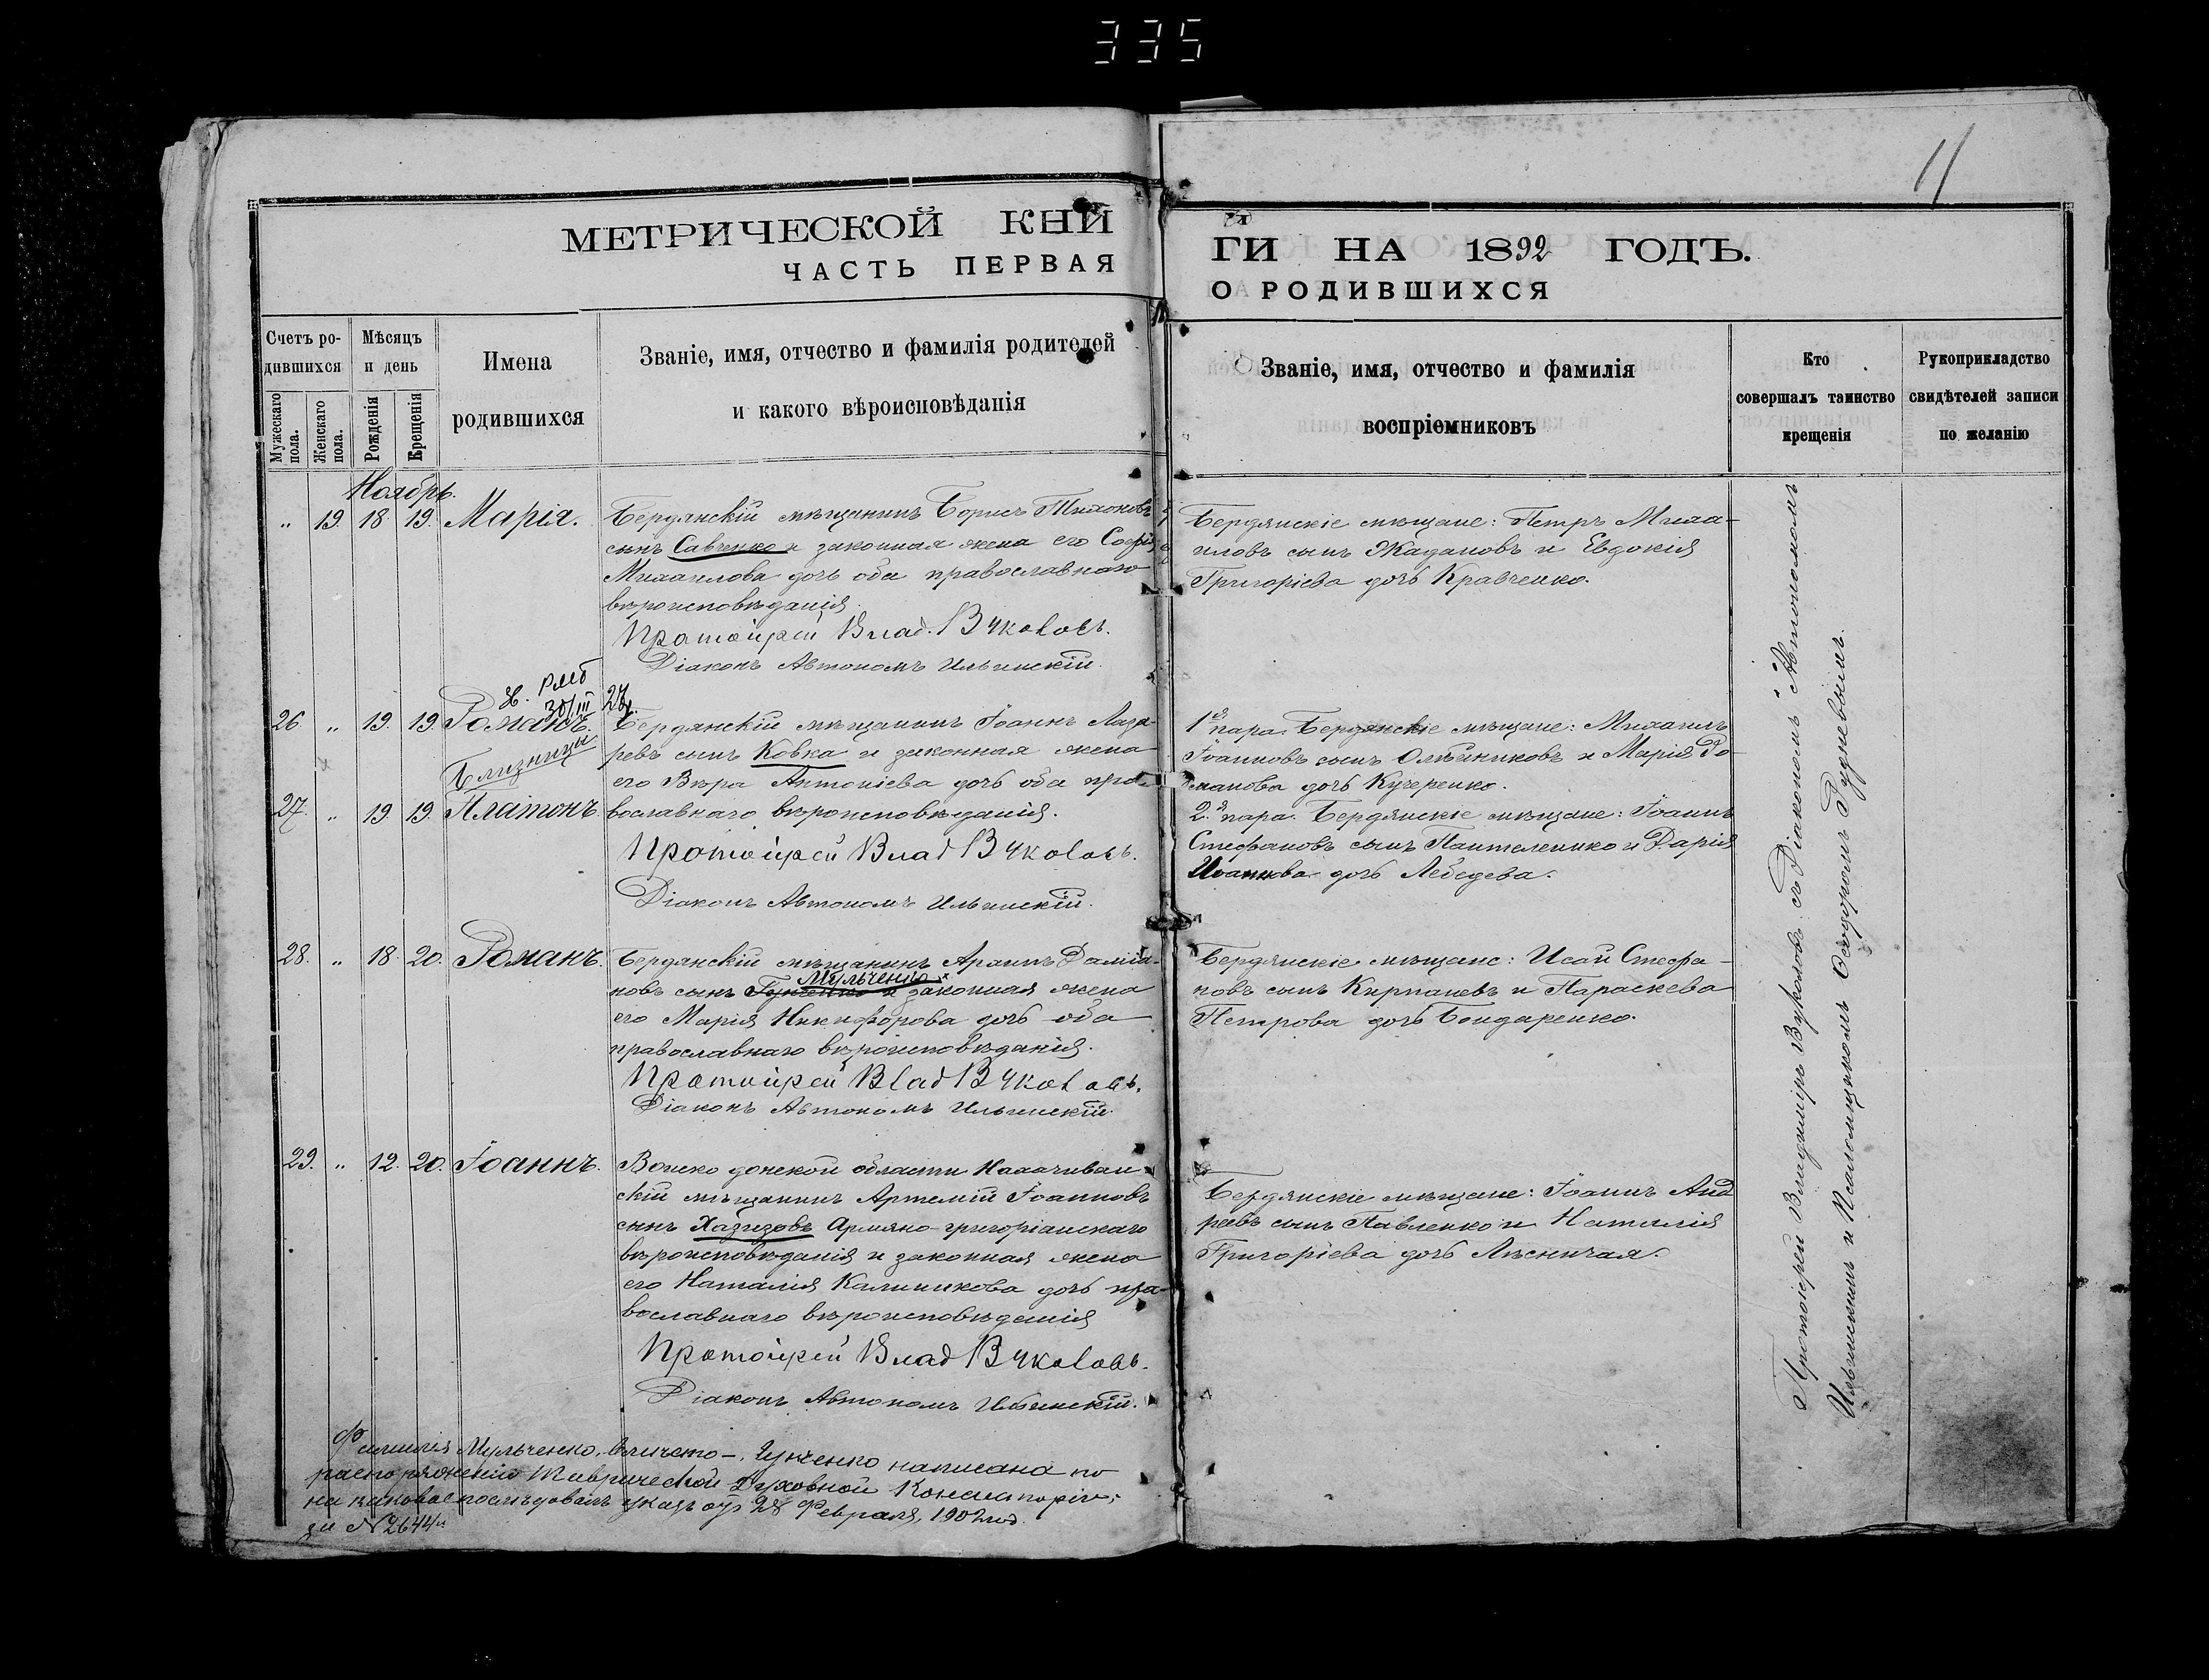 335
11
МЕТРИЧЕСКОЙ КНИ
ЧАСТЬ ПЕРВАЯ
ГИ НА 1892 ГОДЪ.
О РОДИВШИХСЯ
Счетъ ро-
дившихся
Мужескаго пола.
Женскаго пола.
Мѣсяцъ
и день
Рожденія
Крещенія
Имена
родившихся
Званіе, имя, отчество и фамилія родителей
и какого вѣроисповѣданія
Званіе, имя, отчество и фамилія
воспріемниковъ
Кто
совершалъ таинство
крещенія
Рукоприкладство
свидѣтелей записи
по желанію
Ноябрь.
" 19. 18. 19. Марія.
Бердянскій мѣщанинъ Борисъ Тихоновъ
сынъ Савченко и законная жена его Софія
Михаилова дочь оба православнаго
вѣроисповѣданія.
Протоіерей Влад. Вуколовъ.
Діаконъ Автономъ Ильинскій.
Бердянскіе мѣщане: Петръ Миха-
иловъ сынъ Жадановъ и Евдокія
Григоріева дочь Кравченко.
30/III 27.
26. " 19. 19. Романъ.
Близнецы
27. " 19. 19. Платонъ.
Бердянскій мѣщанинъ Іоаннъ Лаза-
ревъ сынъ Ковка и законная жена
его Вѣра Антоніева дочь оба пра-
вославнаго вѣроисповѣданія.
Протоіерей Влад Вуколовъ.
Діаконъ Автономъ Ильинскій.
1я пара. Бердянскіе мѣщане: Михаилъ
Іоанновъ сынъ Олейниковъ и Марія Ро-
манова дочь Кучеренко.
2.я пара. Бердянскіе мѣщане: Іоаннъ
Стефановъ сынъ Пантеленко и Дарія
Иоаннова дочь Лебедева.
28. " 18. 20. Романъ.
Бердянскій мѣщанинъ Архипъ Даміа-
Мульченко
новъ сынъ Гунченко и законная жена
его Марія Никифорова дочь оба
православнаго вѣроисповѣданія.
Протоіерей Влад Вуколовъ.
Діаконъ Автономъ Ильинскій.
Бердянскіе мѣщане: Исай Стефа-
новъ сынъ Кирпаневъ и Параскева
Петрова дочь Бондаренко.
29. " 12. 20. Іоаннъ.
Войско донской области Нахичеван-
скій мѣщанинъ Артемій Іоанновъ
сынъ Хазизовъ Армяно-григоріанскаго
вѣроисповѣданія и законная жена
его Наталія Калиникова дочь пра-
вославнаго вѣроисповѣданія
Протоіерей Влад Вуколовъ.
Діаконъ Автономъ Ильинскій.
Бердянскіе мѣщане: Іоаннъ Анд
реевъ сынъ Павленко и Наталія
Григоріева дочь Лѣсничая.
Протоіерей Владиміръ Вуколовъ съ Діакономъ Автономомъ
Ильинскимъ и Псаломщикомъ Ѳеодоромъ Рудневымъ.
Фамилія Мульченко, вмѣсто -, Гунченко написана по
распоряженію Таврической Духовной Консисторіи;
на каковое послѣдовалъ указъ отъ 28 Февраля, 1902 год.
за № 2644